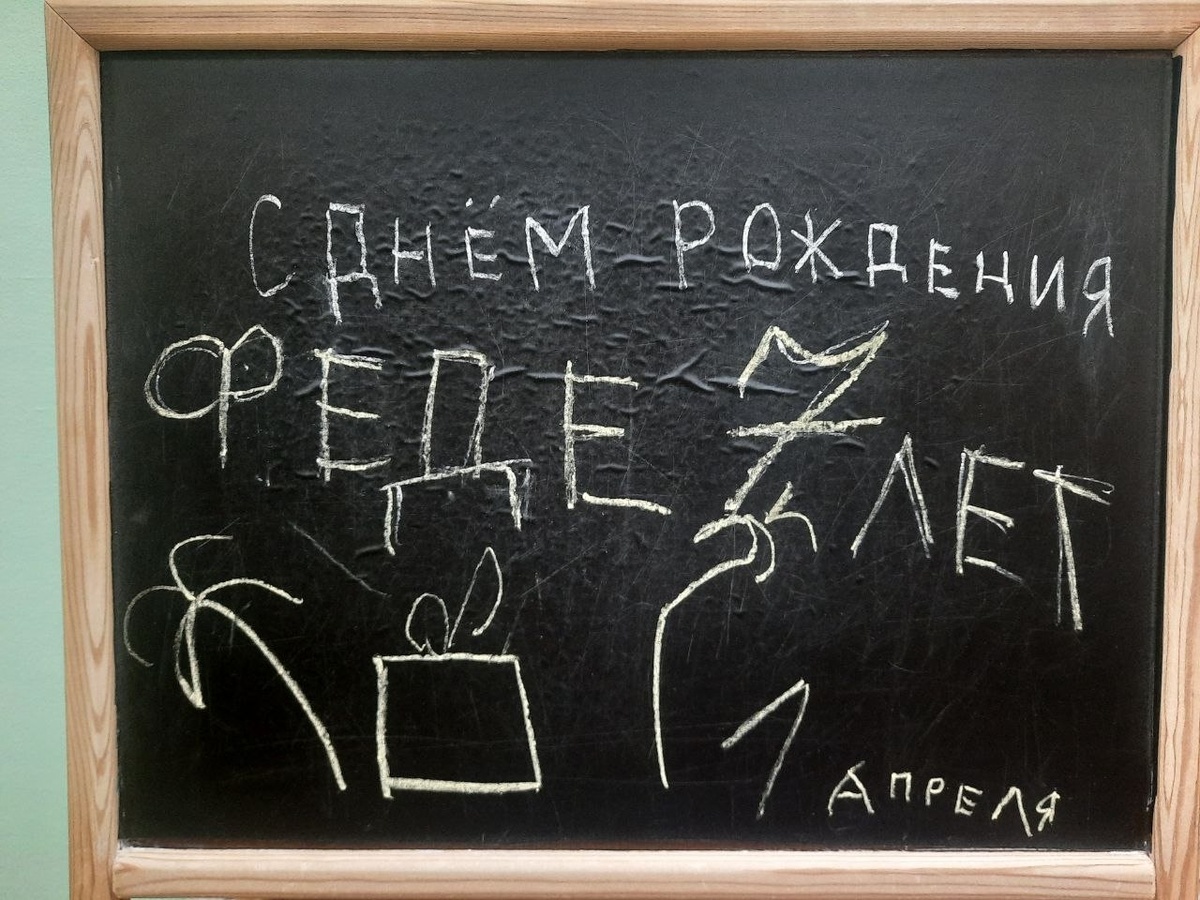 С ДНЁМ РОЖДЕНИЯ
ФЕДЕ 7 ЛЕТ
1 АПРЕЛЯ